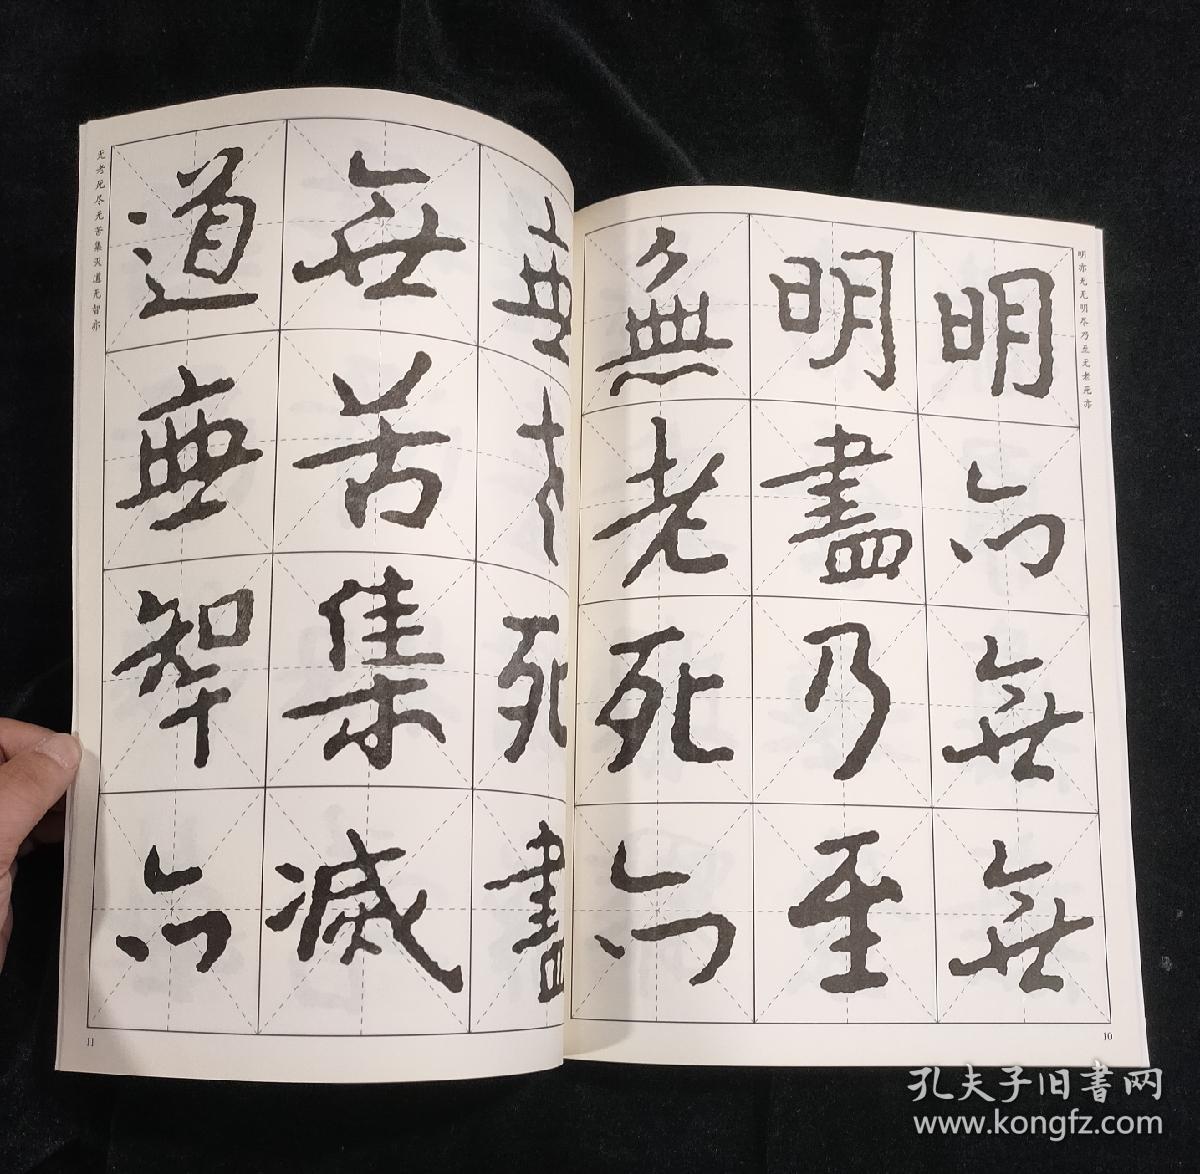 明亦无无明尽乃至无老死亦
明亦無無
明盡乃至
無老死亦
10
無老死盡
無苦集滅
道無智亦
无老死尽无苦集灭道无智亦
11
孔夫子旧書网
www.kongfz.com